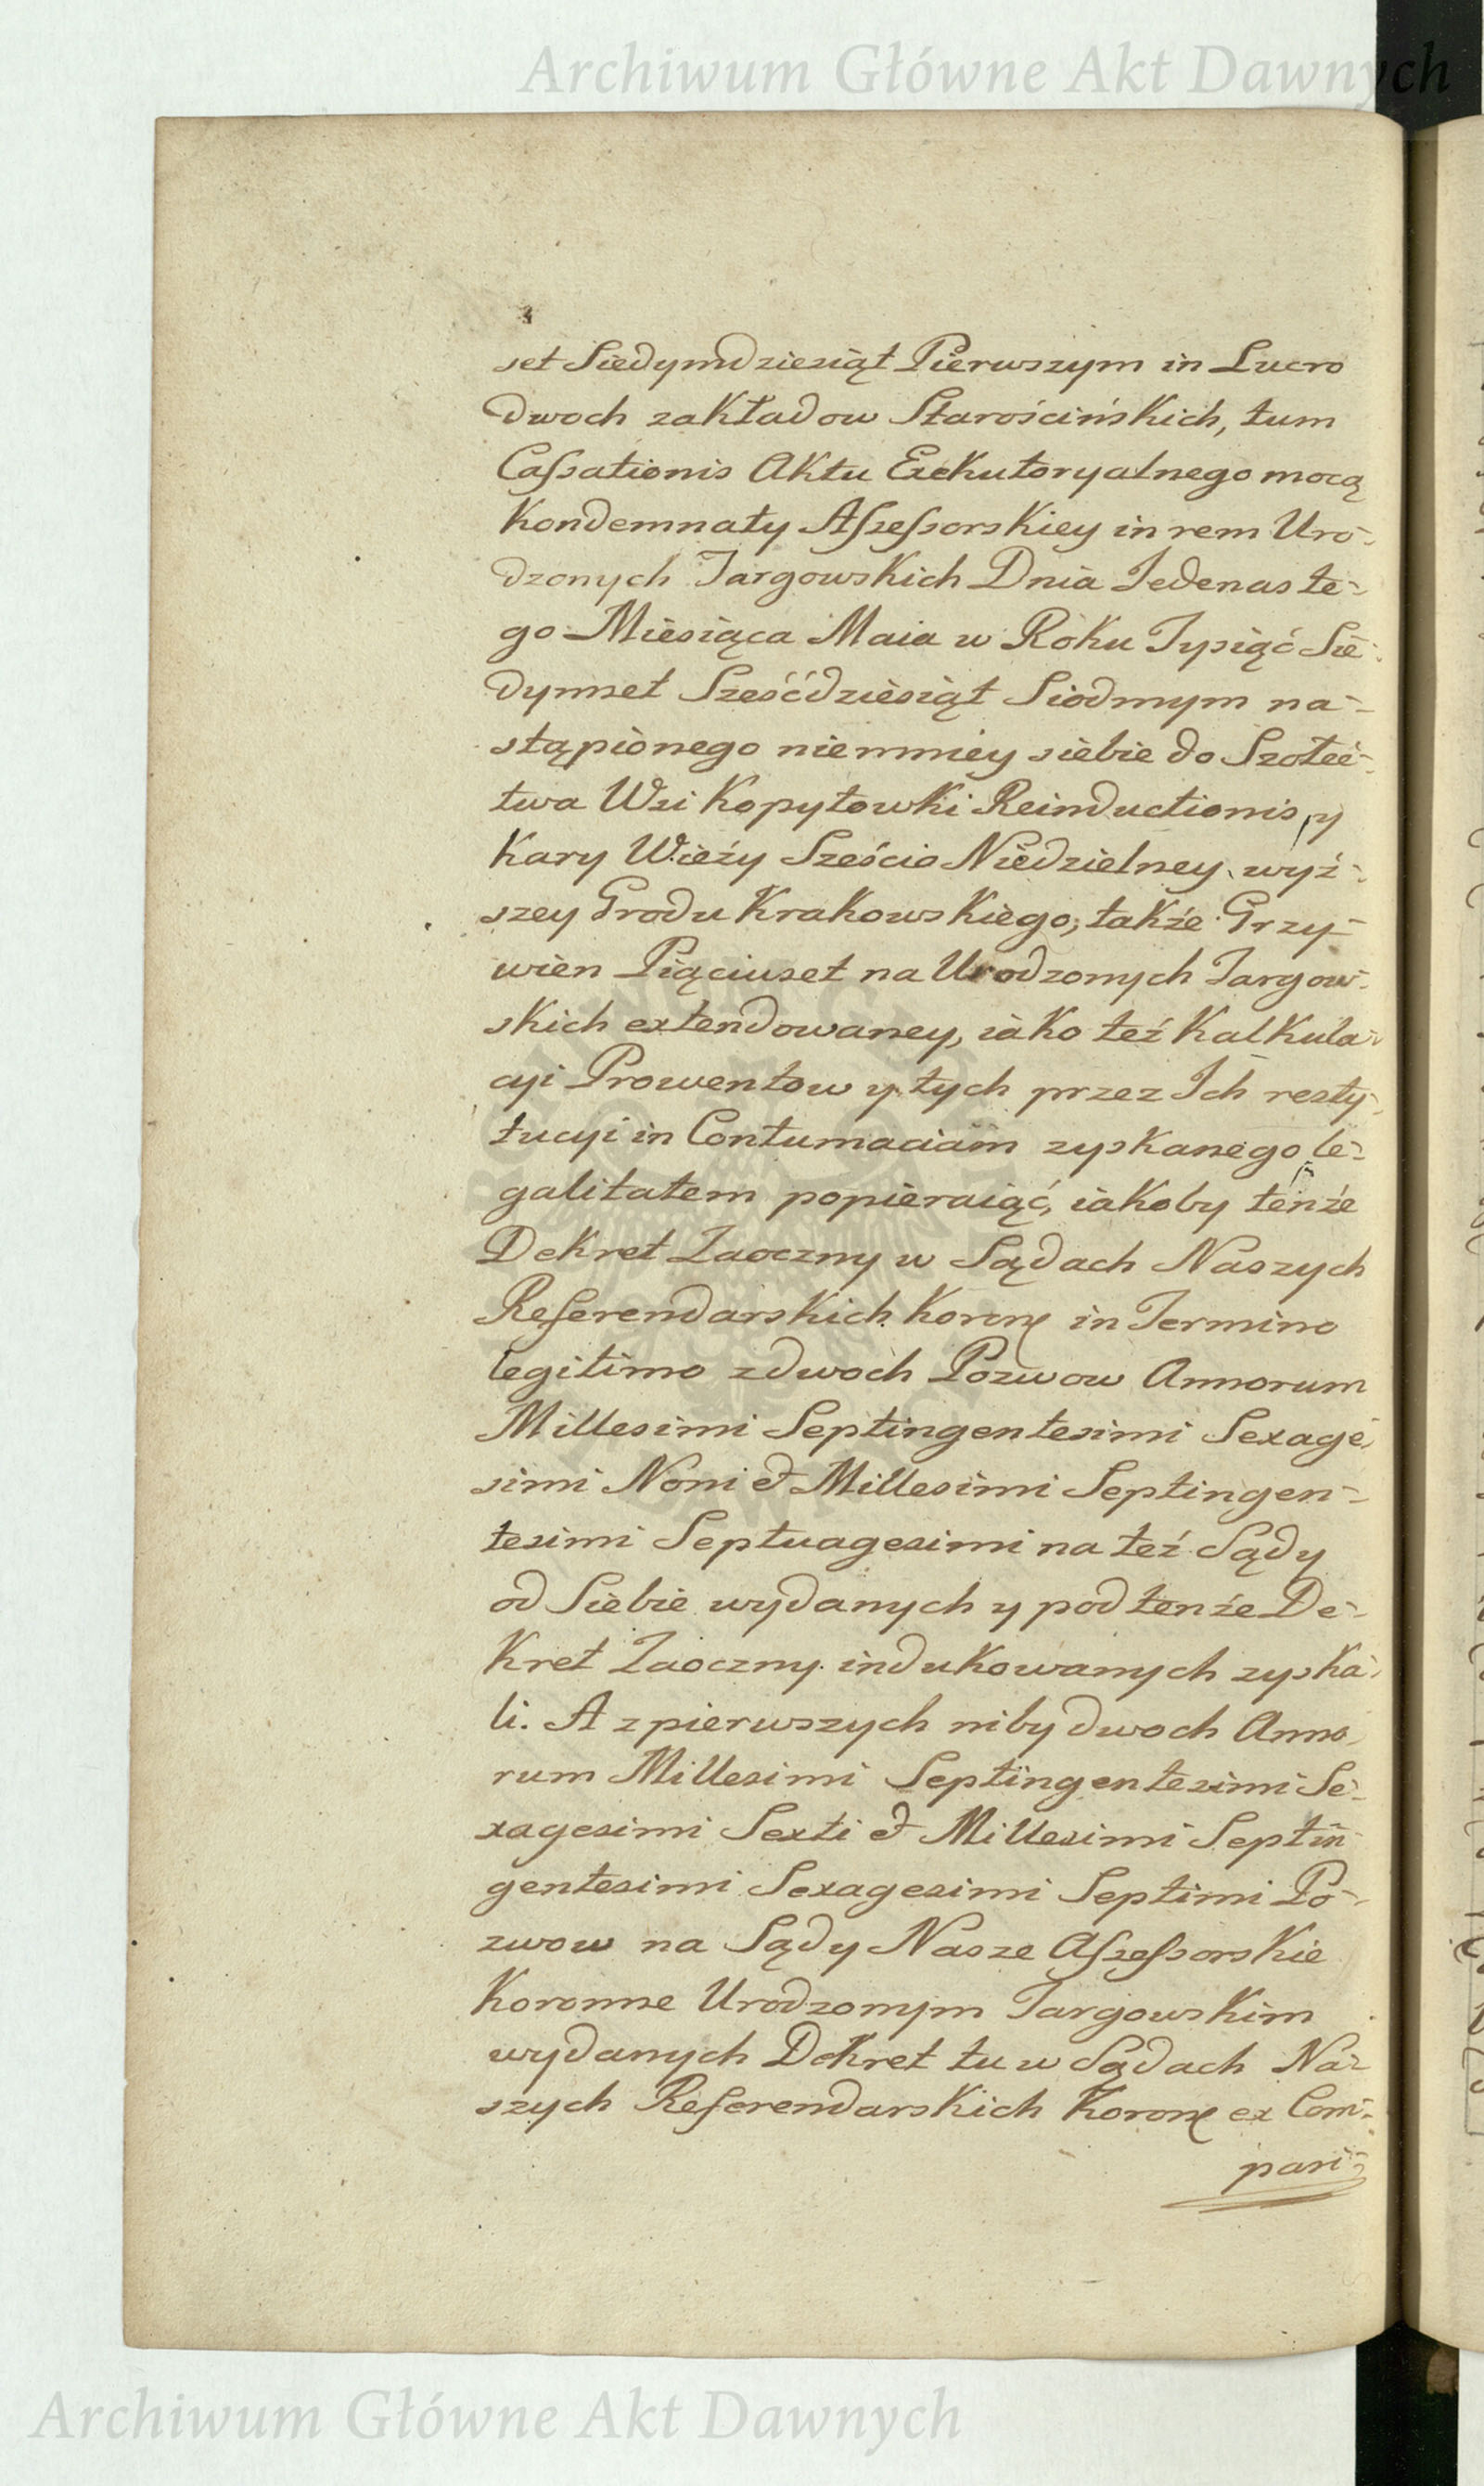 Archiwum Główne Akt Dawnych
set Siedymdziesiąt Pierwszym in Lucro
dwoch zakładow Starościńskich, tum
Cassationis Aktu Exekutoryalnego mocą
Kondemnaty Assessorskiey in rem Uro-
dzonych Targowskich Dnia Jedenaste-
go Miesiąca Maia w Roku Tysiąć Sie-
dymset Sześćdziesiąt Siodmym na-
stąpionego niemniey siebie do Szołec-
twa Wsi Kopytowki Reinductionis, y
Kary Wieży Sześcio Niedzielney wyż-
szey Grodu Krakowskiego, także Grzy-
wien Piąciuset na Urodzonych Targow-
skich extendowaney, iako też Kalkula-
cyi Prowentow y tych przez Ich resty-
tucyi in Contumaciam zyskanego le-
galitatem popieraiąć, iakoby tenże
Dekret Zaoczny w Sądach Naszych
Referendarskich Koronx in Termino
legitimo z dwoch Pozwow Annorum
Millesimi Septingentesimi Sexage-
simi Noni & Millesimi Septingen-
tesimi Septuagesimi na też Sądy
od Siebie wydanych y pod tenże De-
kret Zaoczny indukowanych zyska-
li. A z pierwszych niby dwoch Anno-
rum Millesimi Septingentesimi Se-
xagesimi Sexti & Millesimi Septin-
gentesimi Sexagesimi Septimi Po-
zwow na Sądy Nasze Assessorskie
Koronne Urodzonym Targowskim
wydanych Dekret tu w Sądach Na-
szych Referendarskich Koronx ex Com-
pari-
Archiwum Główne Akt Dawnych